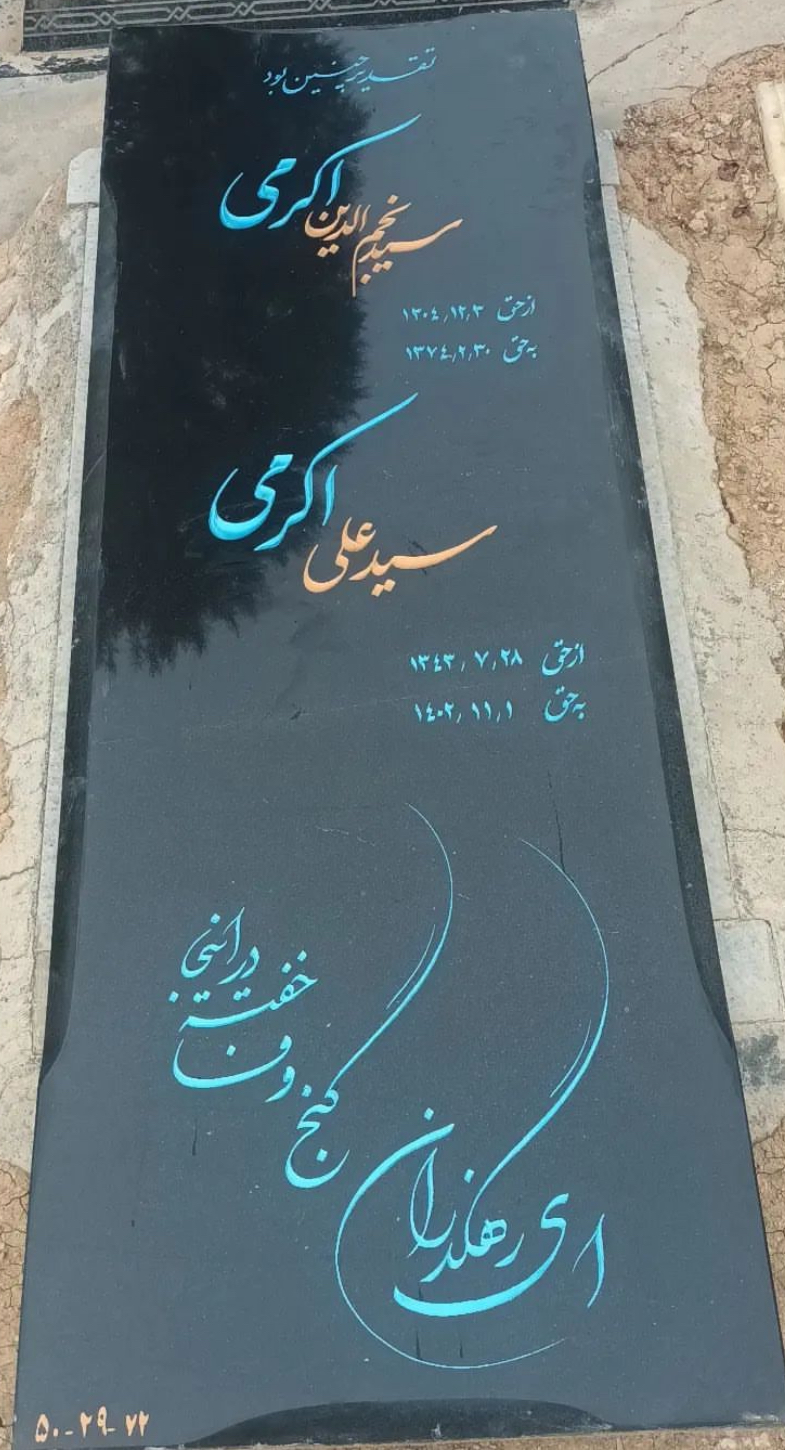 تقدیر چنین بود
سید نجم الدین اکرمی
از حق ۱۳۰۴,۱۲,۳
به حق ۱۳۷۴,۲,۳۰
سید علی اکرمی
از حق ۱۳۴۳,۷,۲۸
به حق ۱۴۰۲,۱۱,۱
ای رهگذران
گنج وفا
خفته در اینجا
۵۰-۲۹-۷۲